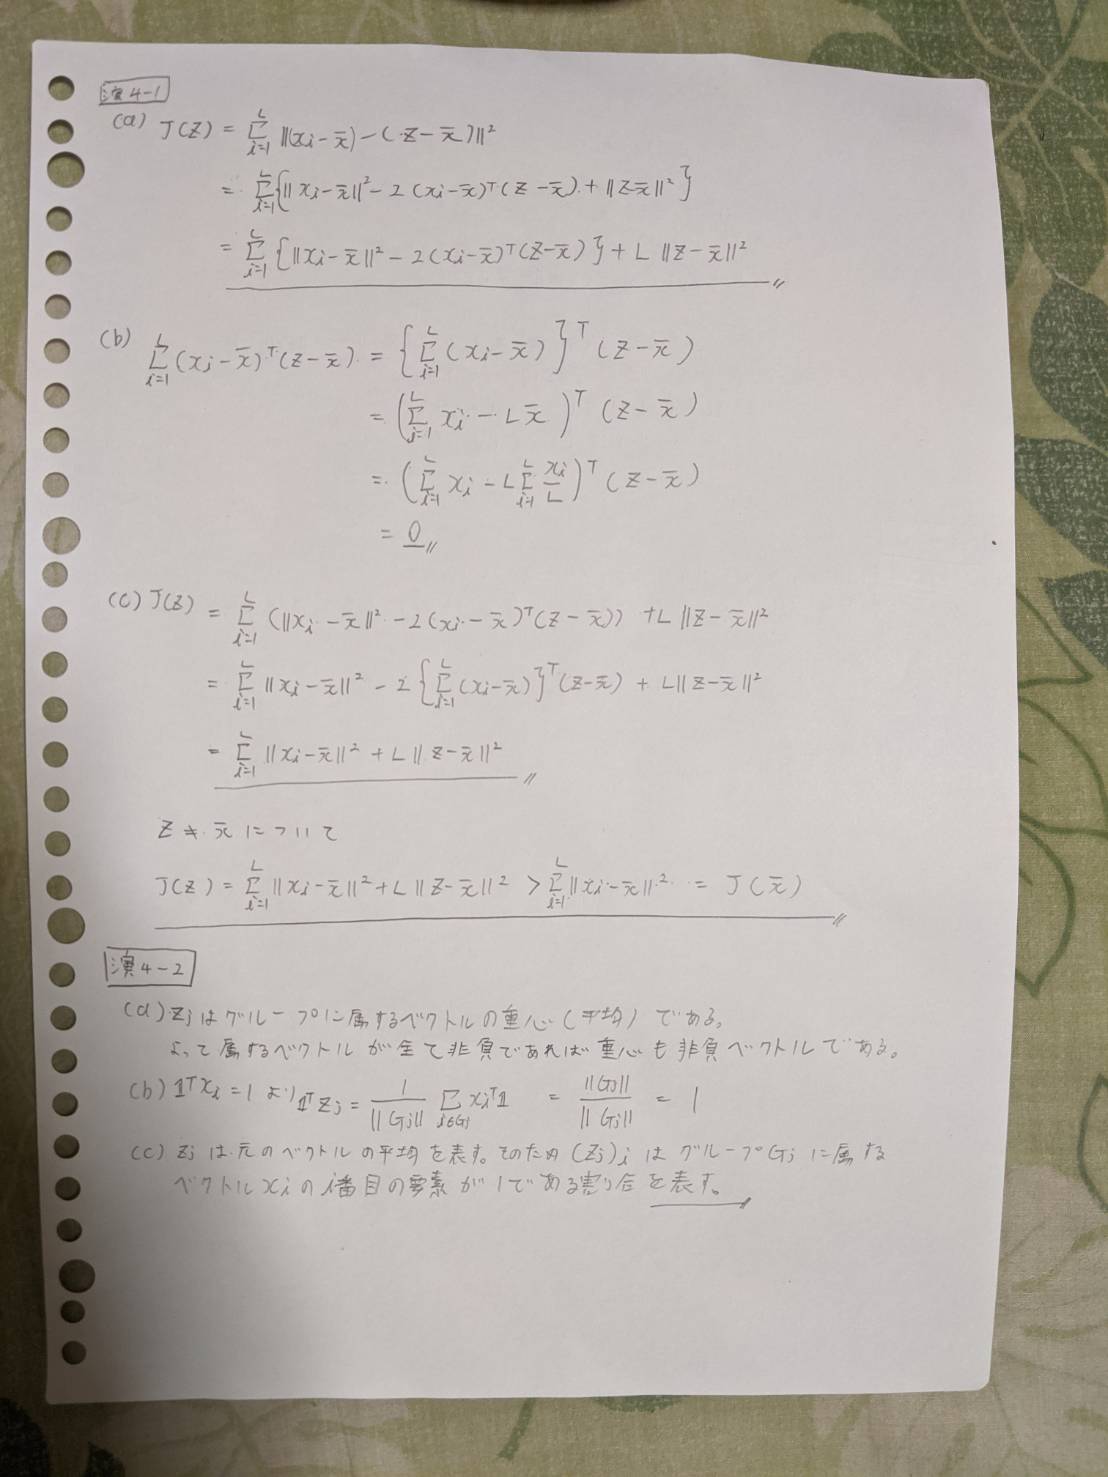 演4-1
(a) J(z) = Σ_{i=1}^{L} ||(xi - x̄) - (z - x̄)||²
= Σ_{i=1}^{L} {||xi - x̄||² - 2(xi - x̄)ᵀ(z - x̄) + ||z-x̄||²}
= Σ_{i=1}^{L} {||xi - x̄||² - 2(xi - x̄)ᵀ(z - x̄)} + L ||z - x̄||² 〃
(b) Σ_{i=1}^{L} (xi - x̄)ᵀ(z - x̄) = {Σ_{i=1}^{L} (xi - x̄)}ᵀ (z - x̄)
= (Σ_{i=1}^{L} xi - L x̄)ᵀ (z - x̄)
= (Σ_{i=1}^{L} xi - L Σ_{i=1}^{L} xi/L)ᵀ (z - x̄)
= 0 〃
(c) J(z) = Σ_{i=1}^{L} (||xi - x̄||² - 2(xi - x̄)ᵀ(z - x̄)) + L ||z - x̄||²
= Σ_{i=1}^{L} ||xi - x̄||² - 2 {Σ_{i=1}^{L} (xi - x̄)}ᵀ(z - x̄) + L ||z - x̄||²
= Σ_{i=1}^{L} ||xi - x̄||² + L ||z - x̄||² 〃
z ≠ x̄ について
J(z) = Σ_{i=1}^{L} ||xi - x̄||² + L ||z - x̄||² > Σ_{i=1}^{L} ||xi - x̄||² = J(x̄) 〃
演4-2
(a) zj はグループに属するベクトルの重心(平均)である。
よって属するベクトルが全て非負であれば重心も非負ベクトルである。
(b) 1ᵀxi = 1 より 1ᵀzj = 1/||Gj|| Σ_{i∈Gj} xiᵀ1 = ||Gj||/||Gj|| = 1
(c) zj は元のベクトルの平均を表す。そのため (zj)i は グループGj に属する
ベクトル xi の i番目の要素が1である割り合を表す。〃